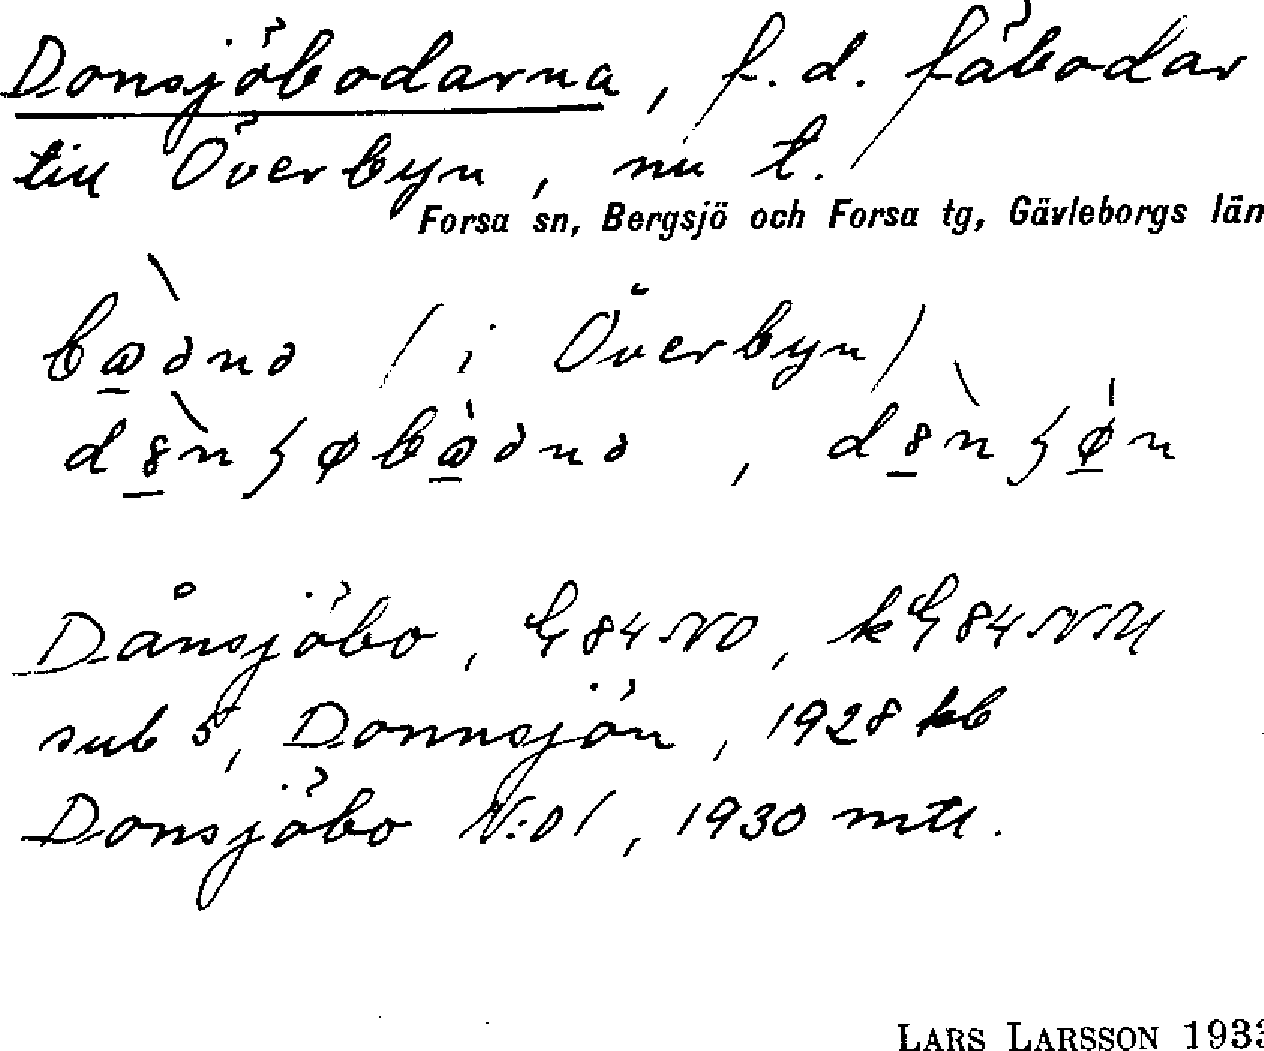 Donsjöbodarna, f. d. fäbodar
till Överbyn, nu t.
Forsa sn, Bergsjö och Forsa tg, Gävleborgs län
(i Överbyn)
Dånsjöbo, G 84 NO, kG 84 NV
sub 5, Donnsjön, 1928 kb
Donsjöbo N:o 1, 1930 mtl.
LARS LARSSON 1933